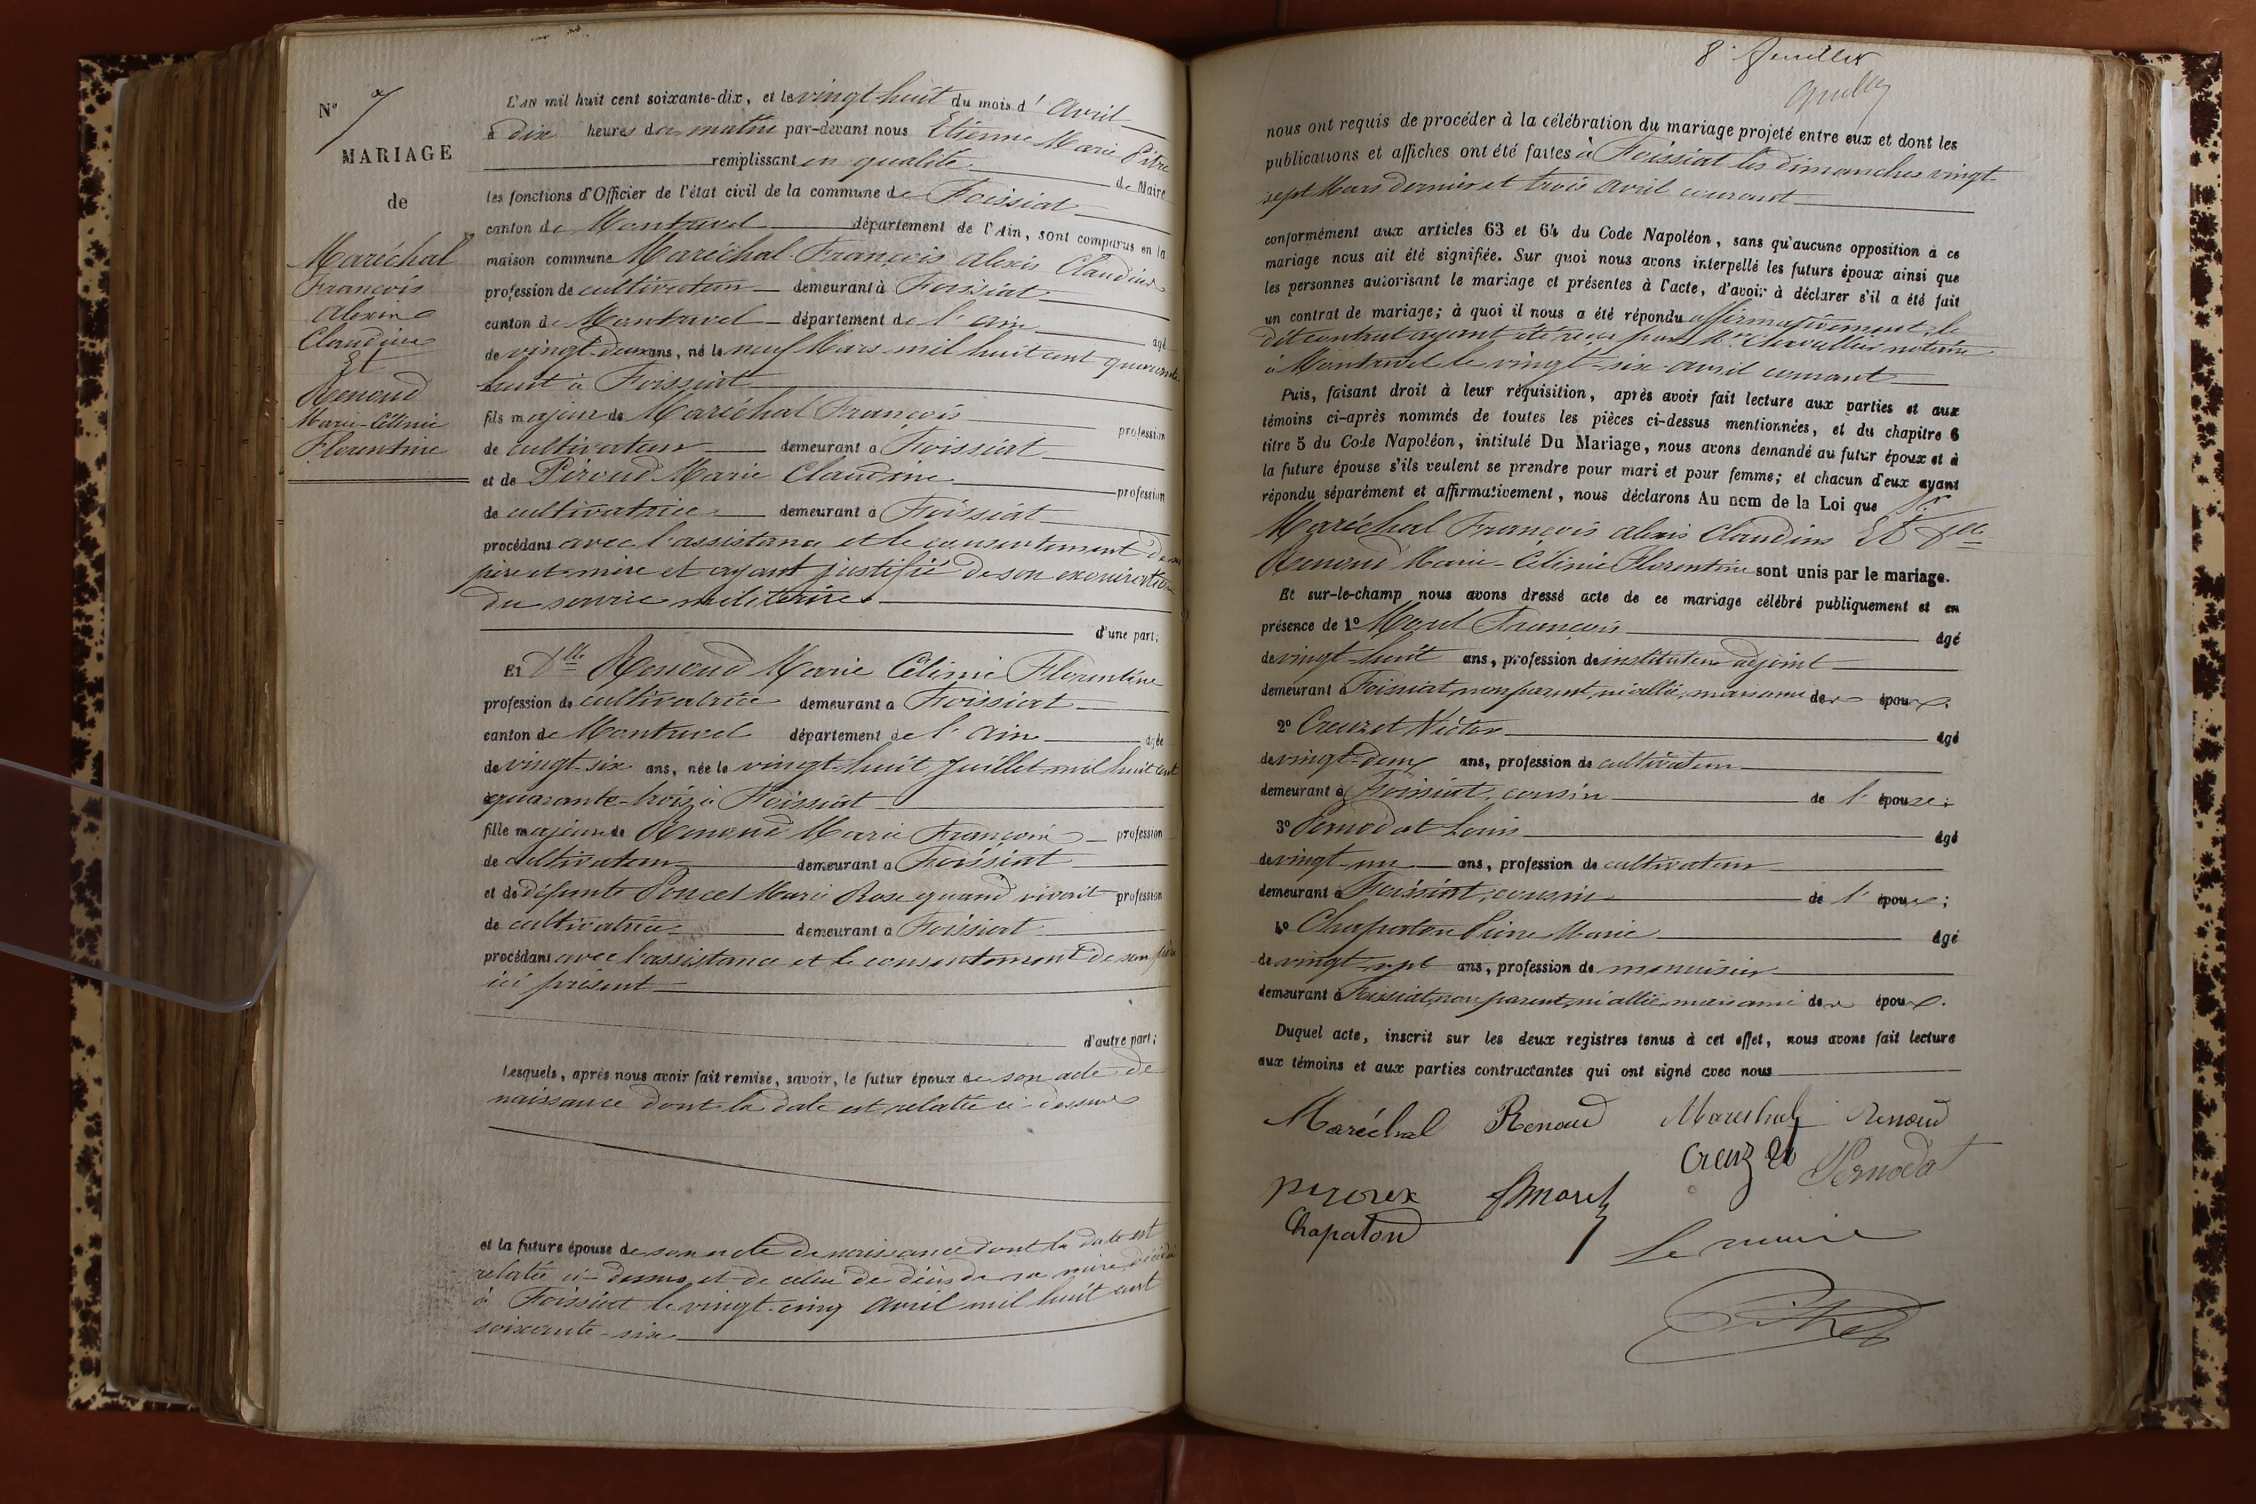 N° 7
MARIAGE
de
Maréchal
François
Alexis
Claudius
Et
Renoud
Marie-Célinie
Florentine
L'AN mil huit cent soixante-dix, et le vingt huit du mois d' Avril
à dix heures du matin par-devant nous Etienne Marie Pitre
remplissant en qualité de Maire
les fonctions d'Officier de l'état civil de la commune de Foissiat
canton de Montrevel département de l'Ain, sont comparus en la
maison commune Maréchal François Alexis Claudius
profession de cultivateur demeurant à Foissiat
canton de Montrevel département de l'Ain âgé
de vingt-deux ans, né le neuf Mars mil huit cent quarante
huit à Foissiat
fils majeur de Maréchal François profession
de cultivateur demeurant à Foissiat
et de Piroud Marie Claudine profession
de cultivatrice demeurant à Foissiat
procédant avec l'assistance et le consentement de ses
père et mère et ayant justifié de son exonération
du service militaire
d'une part;
Et Dlle Renoud Marie Célinie Florentine
profession de cultivatrice demeurant à Foissiat
canton de Montrevel département de l'Ain âgée
de vingt-six ans, née le vingt-huit Juillet mil huit cent
quarante-trois à Foissiat
fille majeure de Renoud Marie François profession
de cultivateur demeurant à Foissiat
et de défunte Poncet Marie Rose quand vivait profession
de cultivatrice demeurant à Foissiat
procédant avec l'assistance et le consentement de son père
ici présent
d'autre part;
Lesquels, après nous avoir fait remise, savoir, le futur époux de son acte de
naissance dont la date est relatée ci-dessus
et la future épouse de son acte de naissance dont la date est
relatée ci-dessus et de celui de décès de sa mère décédée
à Foissiat le vingt-cinq avril mil huit cent
soixante-six
8e feuillet
nous ont requis de procéder à la célébration du mariage projeté entre eux et dont les
publications et affiches ont été faites à Foissiat les dimanches vingt-
sept Mars dernier et trois avril courant
conformément aux articles 63 et 64 du Code Napoléon, sans qu'aucune opposition à ce
mariage nous ait été signifiée. Sur quoi nous avons interpellé les futurs époux ainsi que
les personnes autorisant le mariage et présentes à l'acte, d'avoir à déclarer s'il a été fait
un contrat de mariage; à quoi il nous a été répondu affirmativement, le
dit contrat ayant été reçu par Me notaire
à Montrevel le vingt-six avril courant
Puis, faisant droit à leur réquisition, après avoir fait lecture aux parties et aux
témoins ci-après nommés de toutes les pièces ci-dessus mentionnées, et du chapitre 6
titre 5 du Code Napoléon, intitulé Du Mariage, nous avons demandé au futur époux et à
la future épouse s'ils veulent se prendre pour mari et pour femme; et chacun d'eux ayant
répondu séparément et affirmativement, nous déclarons Au nom de la Loi que Sr
Maréchal François Alexis Claudius Et Dlle
Renoud Marie-Célinie Florentine sont unis par le mariage.
Et sur-le-champ nous avons dressé acte de ce mariage célébré publiquement et en
présence de 1° Morel François âgé
de vingt-huit ans, profession de instituteur adjoint
demeurant à Foissiat, non parent, ni allié, mais ami des époux.
2° Creuzet Victor âgé
de vingt-deux ans, profession de cultivateur
demeurant à Foissiat, cousin de l'épouse;
3° Pernodat Louis âgé
de vingt-un ans, profession de cultivateur
demeurant à Foissiat, cousin de l'épouse;
4° Chapaton Pierre Marie âgé
de vingt-sept ans, profession de menuisier
demeurant à Foissiat, non parent, ni allié, mais ami des époux.
Duquel acte, inscrit sur les deux registres tenus à cet effet, nous avons fait lecture
aux témoins et aux parties contractantes qui ont signé avec nous
Maréchal Renoud Mareshal Renoud
Creuzet Pernodat
Morel
Chapaton
Le maire
Pitre